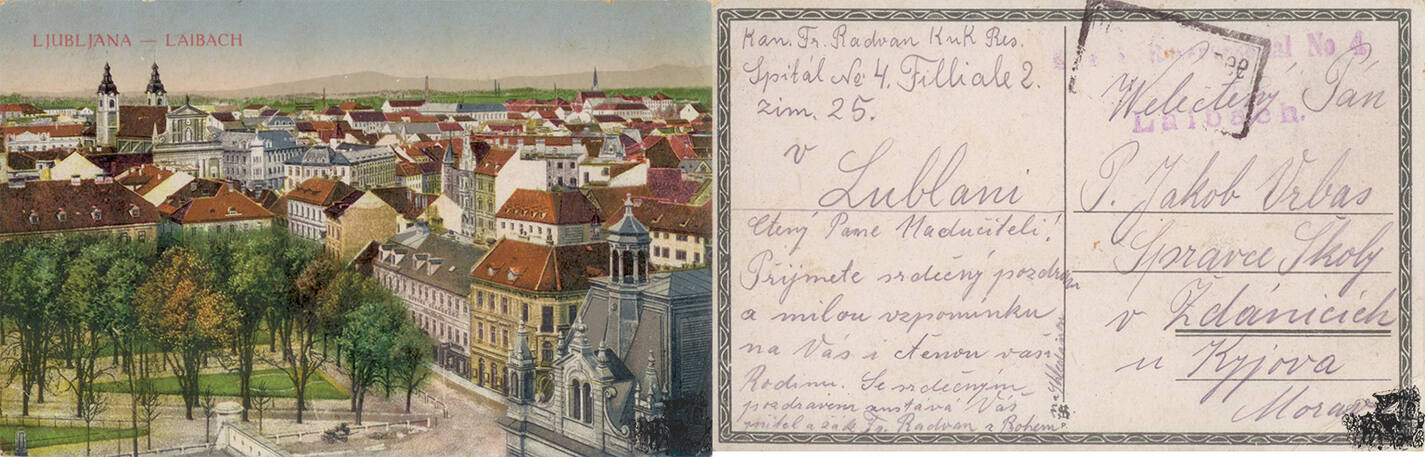 LJUBLJANA — LAIBACH
Kan. Fr. Radvan KuK Res.
Spitál No 4. Filliale 2.
zim. 25.
v
Lublani
Ctený Pane Nadučiteli!
Přijmete srdečný pozdrav
a milou vzpomínku
na Vás i ctenou vaši
Rodinu. Se srdečným
pozdravem zustává Váš
Fr. Radvan z Bohem
No 4
Laibach.
Welectený Pán
P. Jakob Vrbas
Spravce Školy
v Ždánicích
u Kyjova
Morava